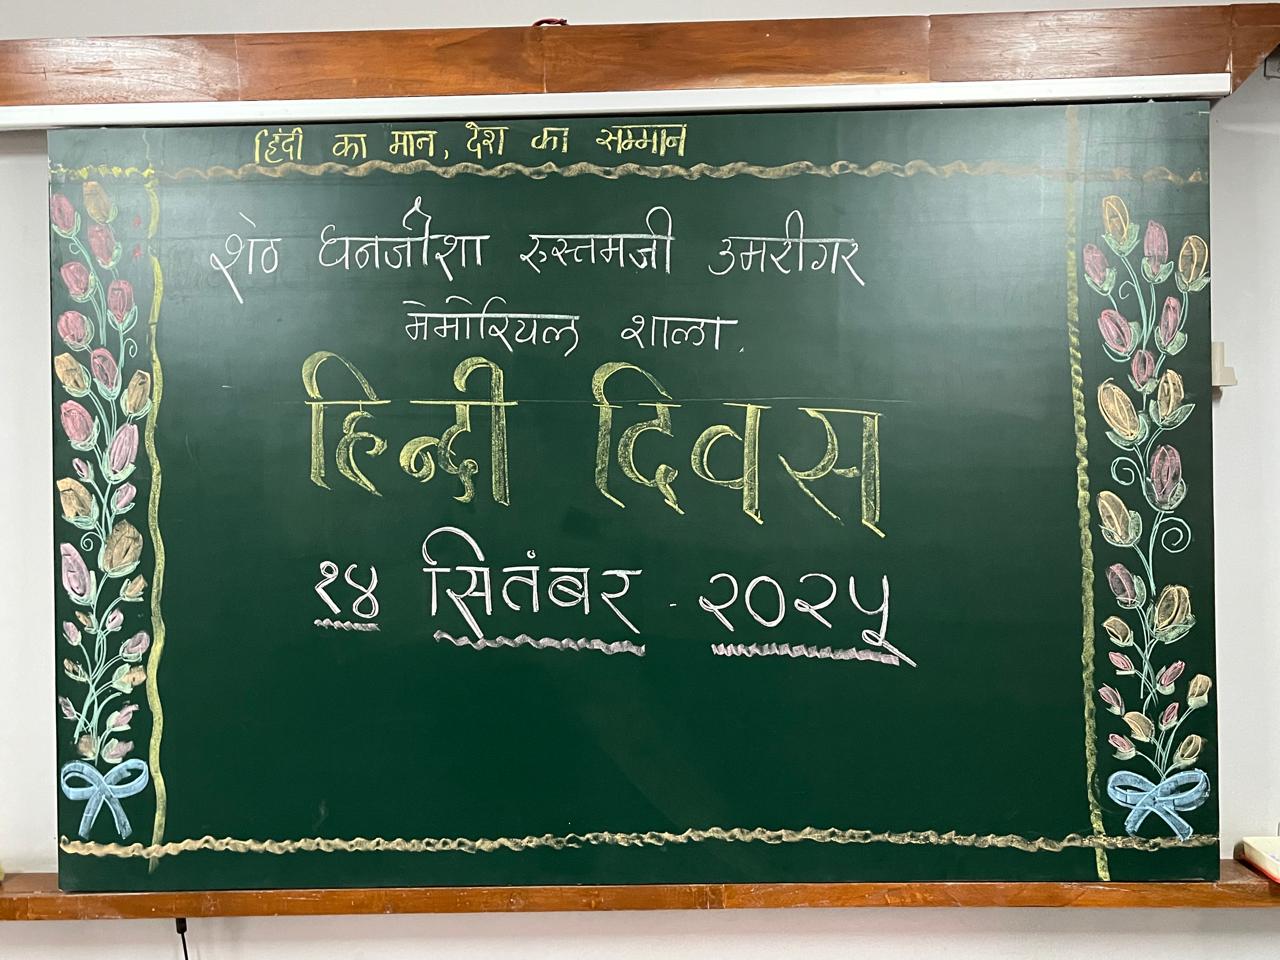 हिंदी का मान, देश का सम्मान
शेठ धनजीशा रुस्तमजी उमरीगर
मेमोरियल शाला.
हिन्दी दिवस
१४ सितंबर २०२५